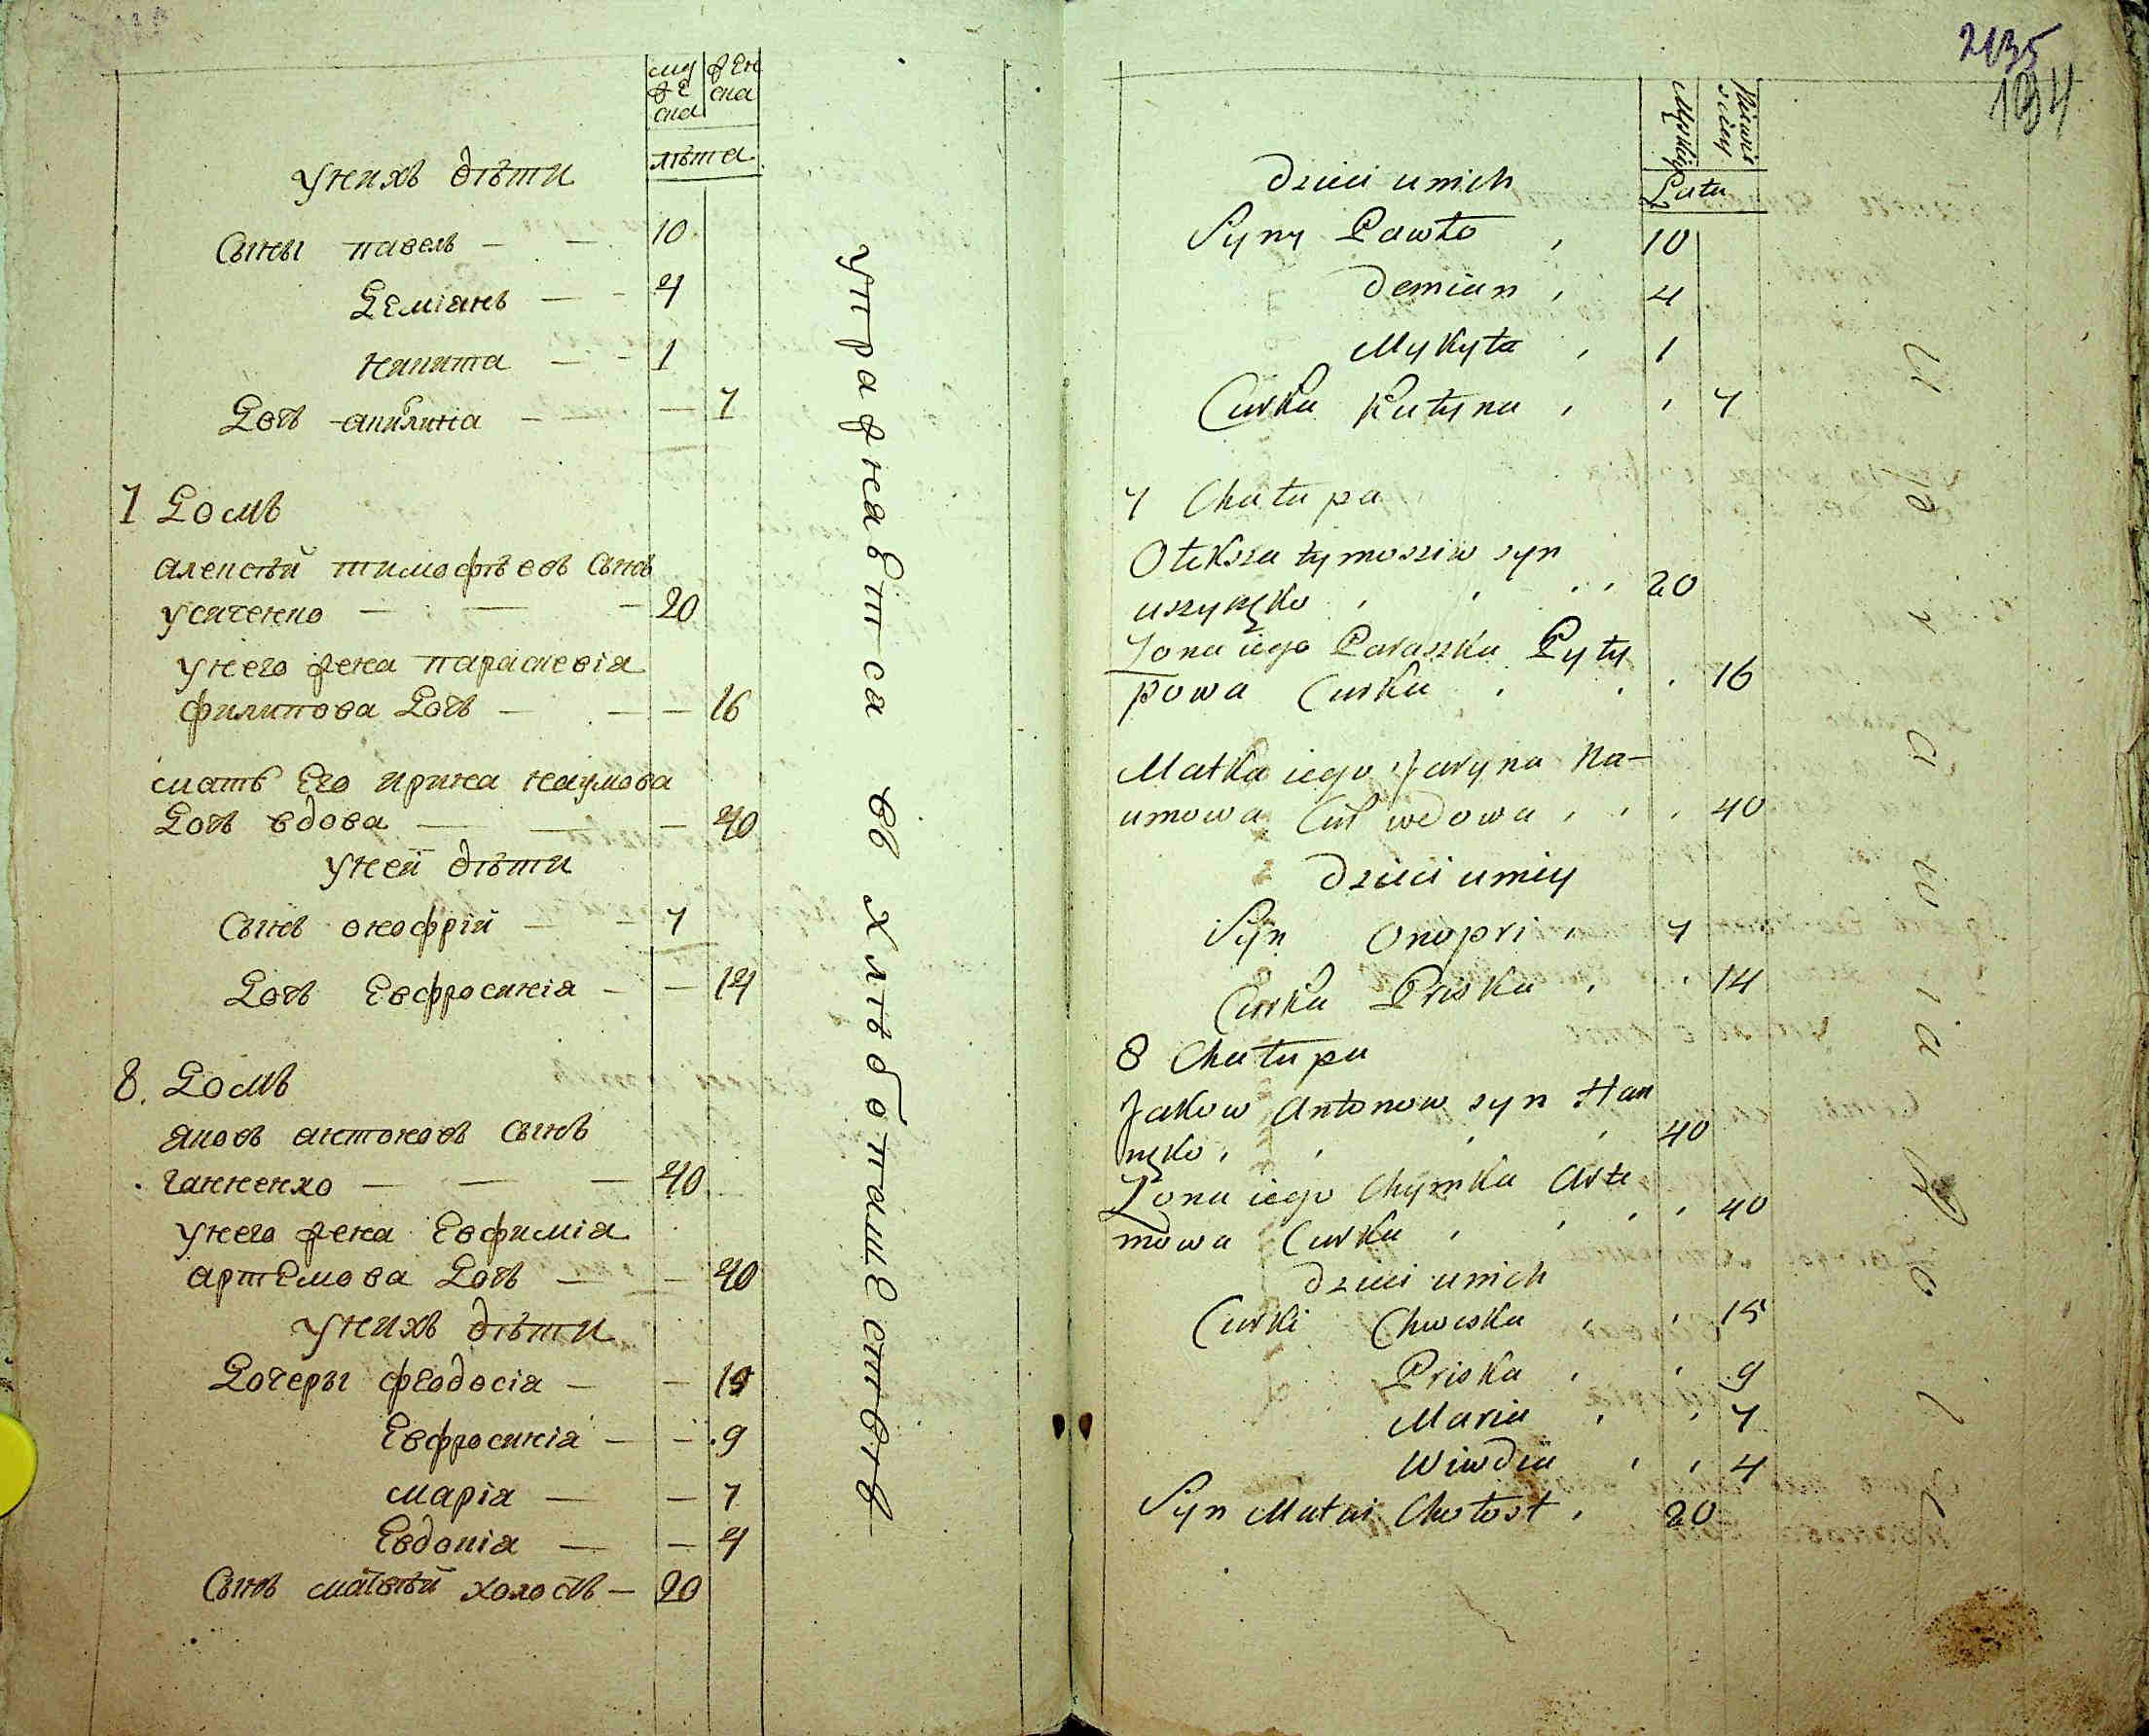 муже ска
жен ска
лѣта
у нихъ дѣти
Сыны павелъ — — 10
Деміанъ — - 4
никита — - 1
Доч акилина — — 7
7 Домъ
алексѣй тимофѣевъ сынъ
усиченко — — — 20
у него жена параскевіа
филипова Дочь — — — 16
мать Его ирина наумова
Дочь вдова — — — 40
у ней дѣти
Сынъ онофрій — - 7
Дочь Евфросиніа - — 14
8. Домъ
яковъ антоновъ сынъ
ганненко — — — 40
у него жена Евфиміа
артемова Дочь — — 40
у нихъ дѣти
Дочеры феодосіа — — 15
Евфросиніа — — 9
маріа — — 7
Евдокіа — — 4
Сынъ матѳѣй холостъ — 20
упражнавтса въ хлѣбопашествѣ
2135
194
Męskiey
Latu
Dzieci u nich
Syny Pawło 10
Demian 4
Mykyta 1
Curka Kutyna 7
7 Chatupa
Oteksza tymosziw syn
uszyczko 20
Zona iego Paraszka Pyty
powa Curka 16
Matka iego Jaryna Na-
umowa Cur wdowa 40
Dzieci u niey
Syn Onopri 7
Curka Priska 14
8 Chatupa
Jakow Antonow syn Han
nęko 40
Zona iego Chymka Arte
mowa Curka 40
Dzieci u nich
Curki Chweska 15
Priska 9
Maria 7
Wiwdia 4
Syn Matwi Chołost 20